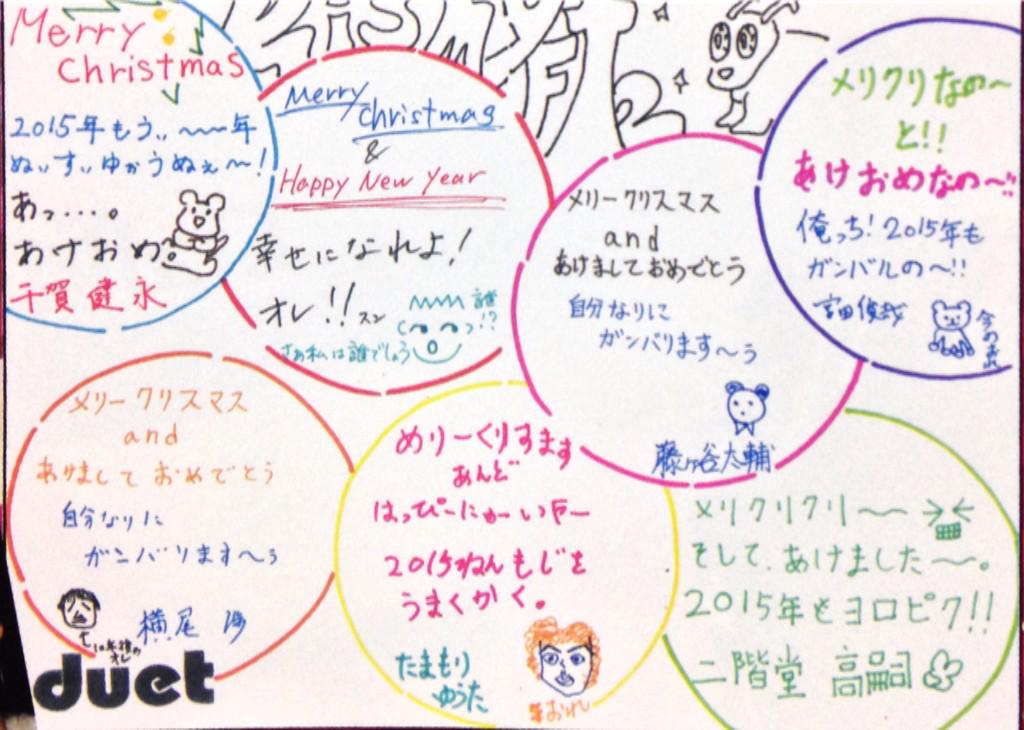 Merry
Christmas
2015年もぅ、、〜〜年
ぬぃすぃゆゎうぬぇ〜!
あっ・・・。
あけおめ
千賀健永
Merry
Christmas
&
Happy New Year
幸せになれよ!
オレ!!スン
誰!?
さあ私は誰でしょう
メリークリスマス
and
あけましておめでとう
自分なりに
ガンバります〜う
藤ヶ谷太輔
メリクリなの〜
と!!
あけおめなの〜!!
俺っち!2015年も
ガンバルの〜!!
宮田俊哉
今のおれ
メリークリスマス
and
あけましておめでとう
自分なりに
ガンバります〜う
横尾渉
10年後の
オレ
duet
めりーくりすます
あんど
はっぴーにゅーいやー
2015ねんもじを
うまくかく。
たまもり
ゆうた
おれ
メリクリクリ〜〜
そして、あけました〜。
2015年もヨロピク!!
二階堂 高嗣